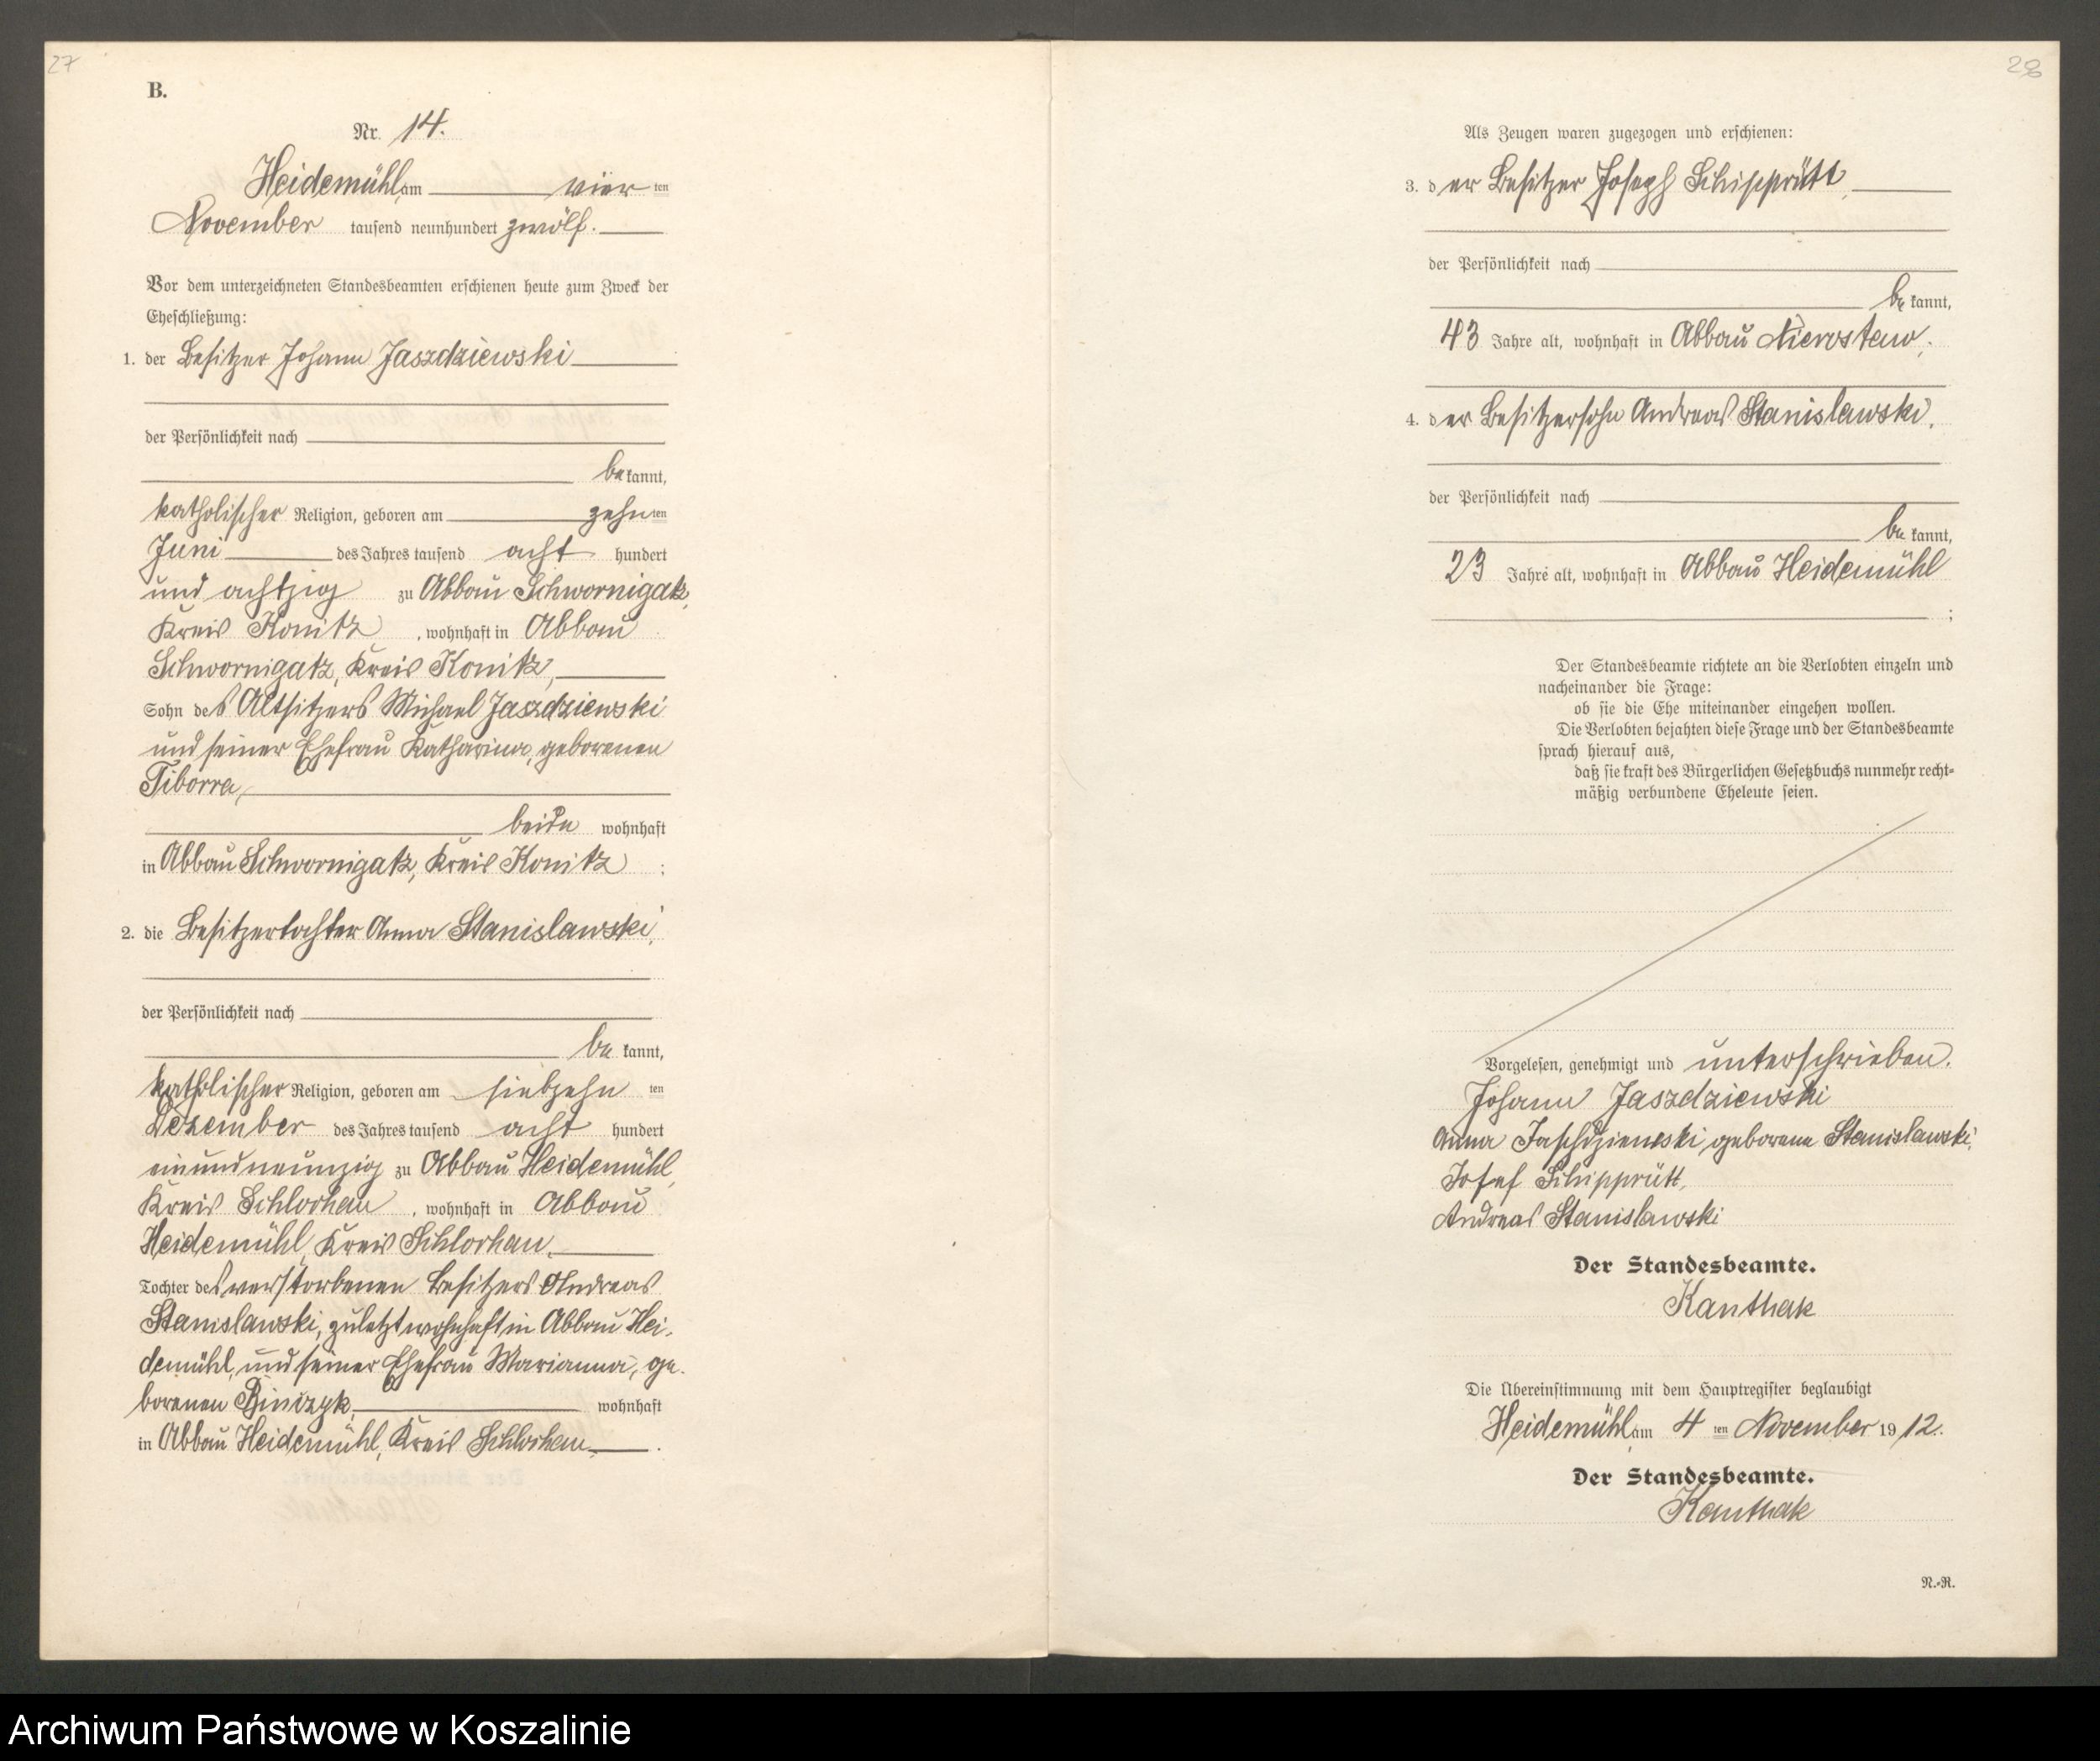 27
B.
Nr. 14.
Heidemühl, am vier ten
November tausend neunhundert zwölf.
Vor dem unterzeichneten Standesbeamten erschienen heute zum Zweck der
Eheschließung:
1. der Besitzer Johann Jaszdziewski
der Persönlichkeit nach
be kannt,
katholischer Religion, geboren am zehn ten
Juni des Jahres tausend acht hundert
und achtzig zu Abbau Schwornigatz,
Kreis Konitz, wohnhaft in Abbau
Schwornigatz, Kreis Konitz,
Sohn des Altsitzers Michael Jaszdziewski
und seiner Ehefrau Katharina, geborenen
Tiborra,
beide wohnhaft
in Abbau Schwornigatz, Kreis Konitz ;
2. die Besitzertochter Anna Stanislawski,
der Persönlichkeit nach
be kannt,
katholischer Religion, geboren am siebzehn ten
Dezember des Jahres tausend acht hundert
einundneunzig zu Abbau Heidemühl,
Kreis Schlochau, wohnhaft in Abbau
Heidemühl, Kreis Schlochau,
Tochter des verstorbenen Besitzers Andreas
Stanislawski, zuletzt wohnhaft in Abbau Hei-
demühl, und seiner Ehefrau Marianna, ge-
borenen wohnhaft
in Abbau Heidemühl, Kreis Schlochau .
28
Als Zeugen waren zugezogen und erschienen:
3. der Besitzer Joseph Schipprütt,
der Persönlichkeit nach
be kannt,
43 Jahre alt, wohnhaft in Abbau ;
4. der Besitzersohn Andreas Stanislawski,
der Persönlichkeit nach
be kannt,
23 Jahre alt, wohnhaft in Abbau Heidemühl
;
Der Standesbeamte richtete an die Verlobten einzeln und
nacheinander die Frage:
ob sie die Ehe miteinander eingehen wollen.
Die Verlobten bejahten diese Frage und der Standesbeamte
sprach hierauf aus,
daß sie kraft des Bürgerlichen Gesetzbuchs nunmehr recht-
mäßig verbundene Eheleute seien.
Vorgelesen, genehmigt und unterschrieben.
Johann Jaszdziewski
Anna Jaschdziewski geborene Stanislawski,
Josef Schipprütt,
Andreas Stanislawski
Der Standesbeamte.
Kanthak
Die Übereinstimmung mit dem Hauptregister beglaubigt
Heidemühl, am 4 ten November 19 12.
Der Standesbeamte.
Kanthak
N.-R.
Archiwum Państwowe w Koszalinie